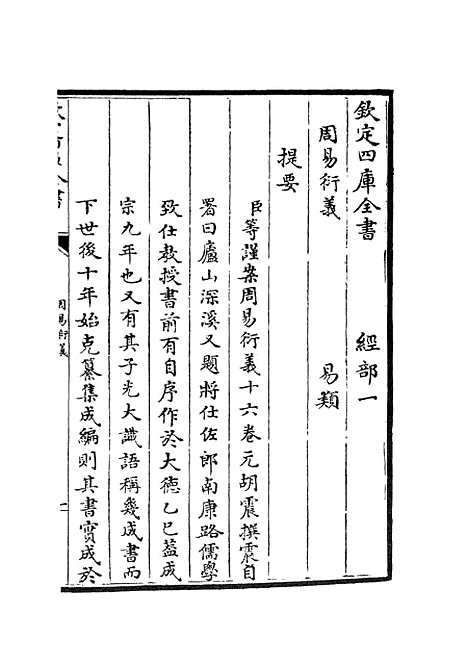 欽定四庫全書　經部一
周易衍義　易類
提要
臣等謹案周易衍義十六卷元胡震撰震自
署曰廬山深溪又題將仕佐郎南康路儒學
致仕教授書前有自序作於大德乙巳蓋成
宗九年也又有其子光大識語稱幾成書而
下世後十年始克纂集成編則其書實成於
周易衍義